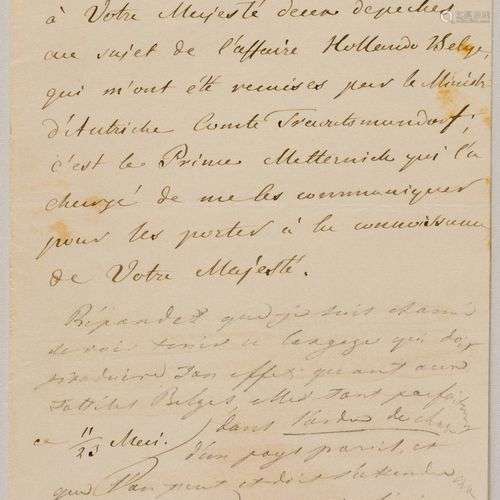 à Votre Majesté deux depeches
au sujet de l'affaire Hollando Belge,
qui m'ont été remises par le Ministr
d'Autriche Comte Trautsmandorf;
c'est le Prince Metternich qui l'a
chargé de me les communiquer
pour les porter à la connoissance
de Votre Majesté.
Répondez que je suis charmé
de voir tenir ce langage qui doit
produire son effet quant aux
Belges elles sont parfaitement
ce 11/23 Mai. dans l'ordre de
d'un pays pareil, et
que l'on peut